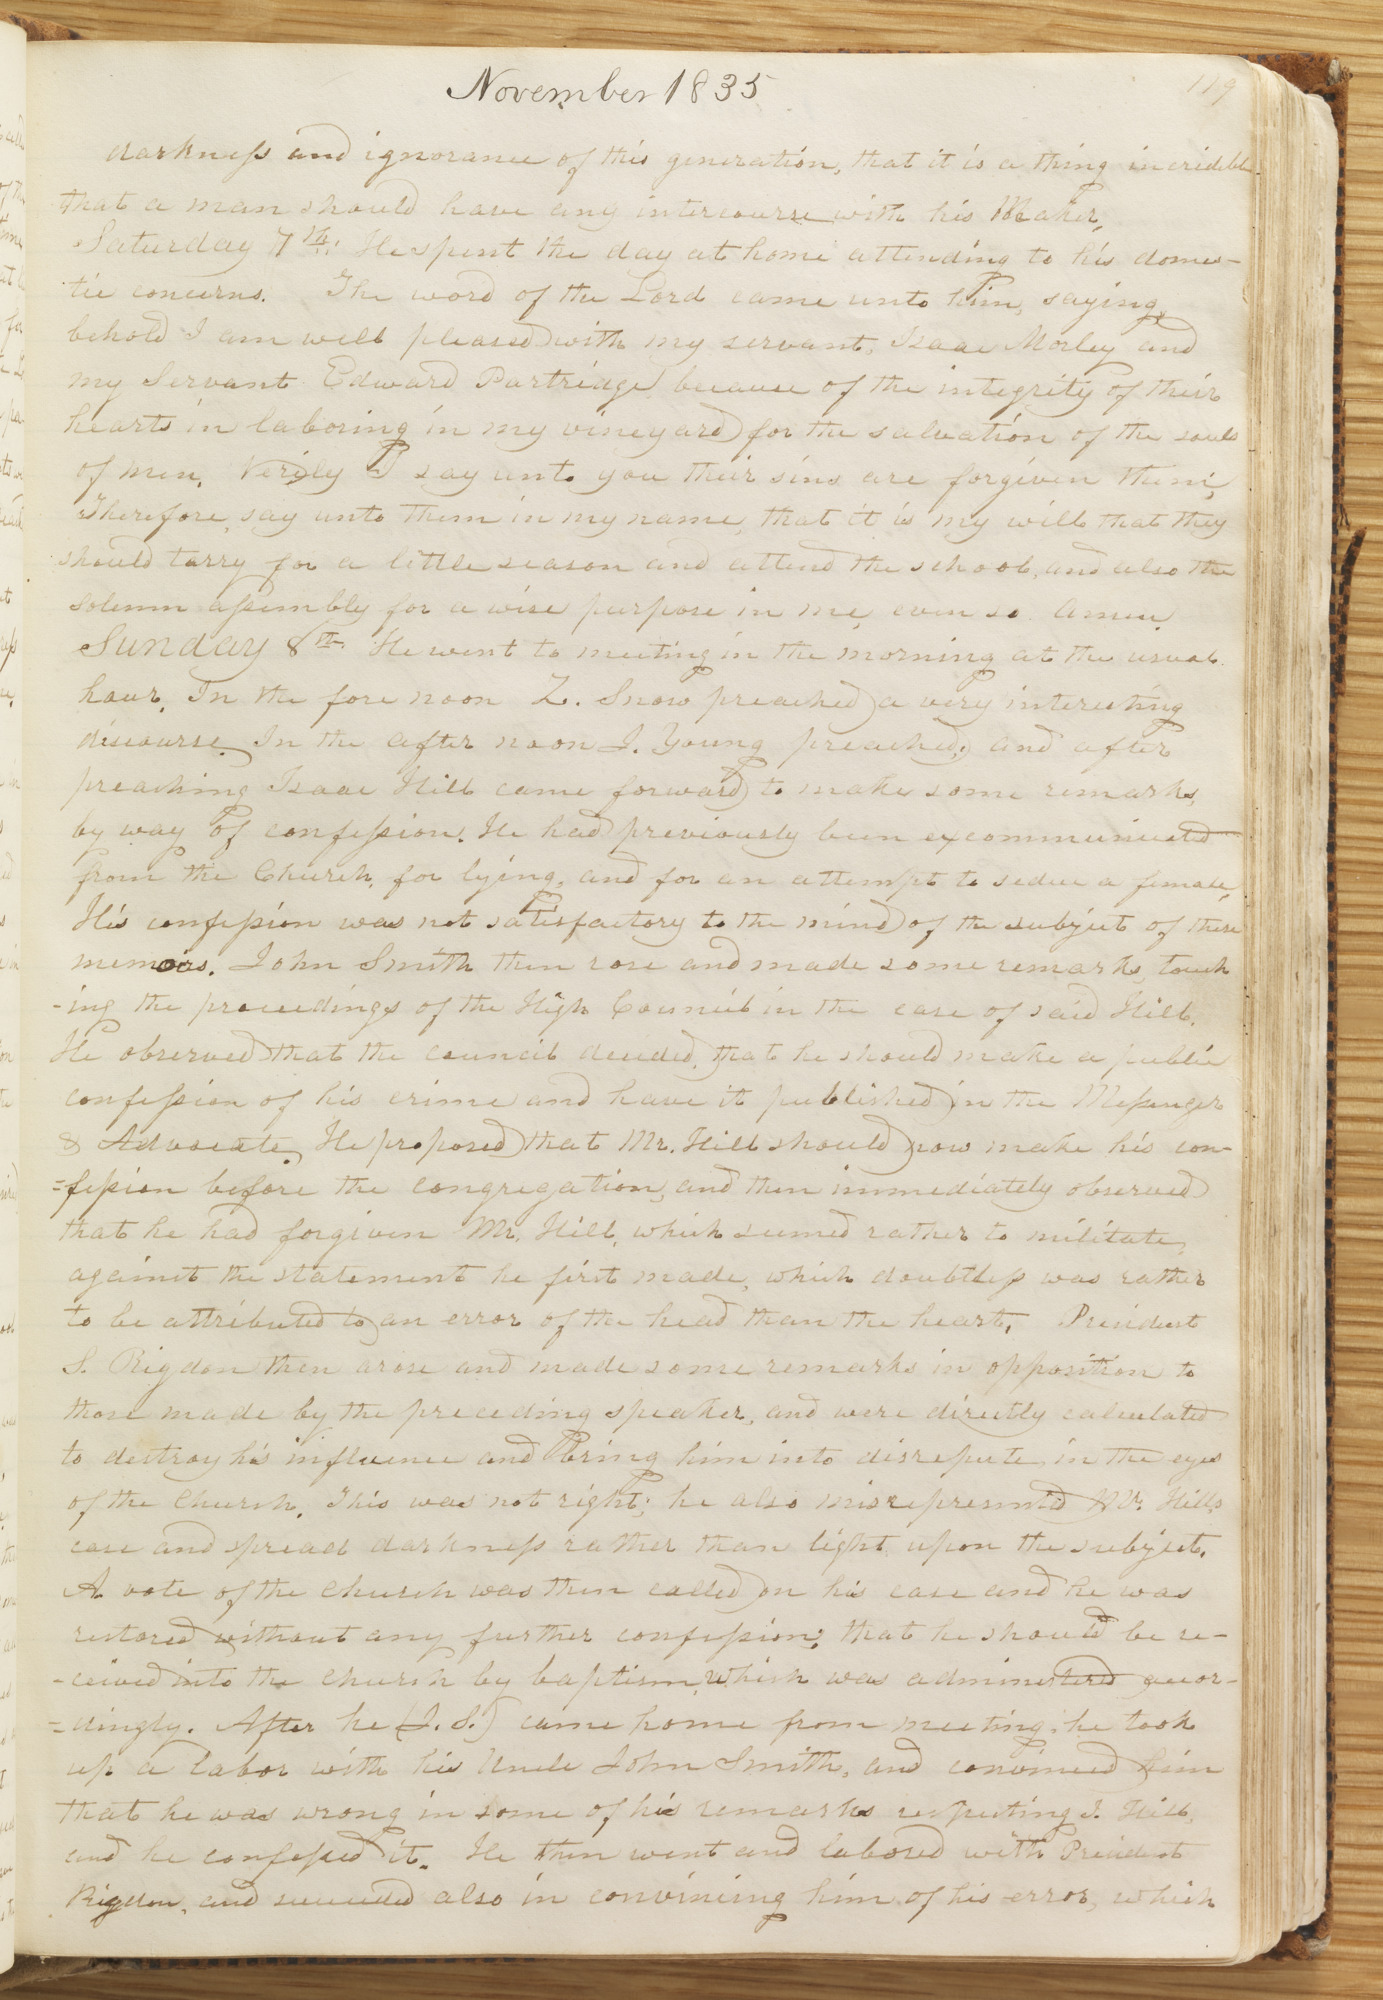 November 1835
119
darkness and ignorance of this generation, that it is a thing incredible
that a man should have any intercourse with his Maker,
Saturday 7th. He spent the day at home attending to his domes-
tic concerns. The word of the Lord came unto him, saying,
behold I am well pleased with my servant, Isaac Morley and
my Servant Edward Partridge, because of the integrity of their
hearts in laboring in my vineyard for the salvation of the souls
of men. Verily I say unto you their sins are forgiven them;
Therefore, say unto them in my name, that it is my will that they
should tarry for a little season and attend the school, and also the
solemn assembly for a wise purpose in me, even so. Amen.
Sunday 8th. He went to meeting in the morning at the usual
hour. In the fore noon Z. Snow preached a very interesting
discourse. In the after noon J. Young preached, and after
preaching Isaac Hill came forward to make some remarks,
by way of confession. He had previously been excommunicated
from the Church, for lying, and for an attempt to seduce a female,
His confession was not satisfactory to the mind of the subject of these
memoirs. John Smith then rose and made some remarks, touch
-ing the proceedings of the High Council in the case of said Hill.
He observed that the council decided, that he should make a public
confession of his crime and have it published in the Messenger
& Advocate. He proposed that Mr. Hill should now make his con-
=fession before the congregation, and then immediately observed
that he had forgiven Mr. Hill, which seemed rather to militate,
against the statement he first made, which doubtless was rather
to be attributed to an error of the head than the heart. President
S. Rigdon then arose and made some remarks in opposition to
those made by the preceding speaker, and were directly calculated
to destroy his influence and bring him into disrepute in the eyes
of the Church. This was not right; he also misrepresented Mr. Hills
case and spread darkness rather than light upon the subject.
A vote of the church was then called on his case and he was
restored without any further confession; that he should be re-
-ceived into the church by baptism, which was administered accor-
=dingly. After he (J. S.) came home from meeting he took
up a labor with his Uncle John Smith, and convinced him
that he was wrong in some of his remarks respecting I. Hill,
and he confessed it. He then went and labored with President
Rigdon, and succeeded also in convincing him of his error, which